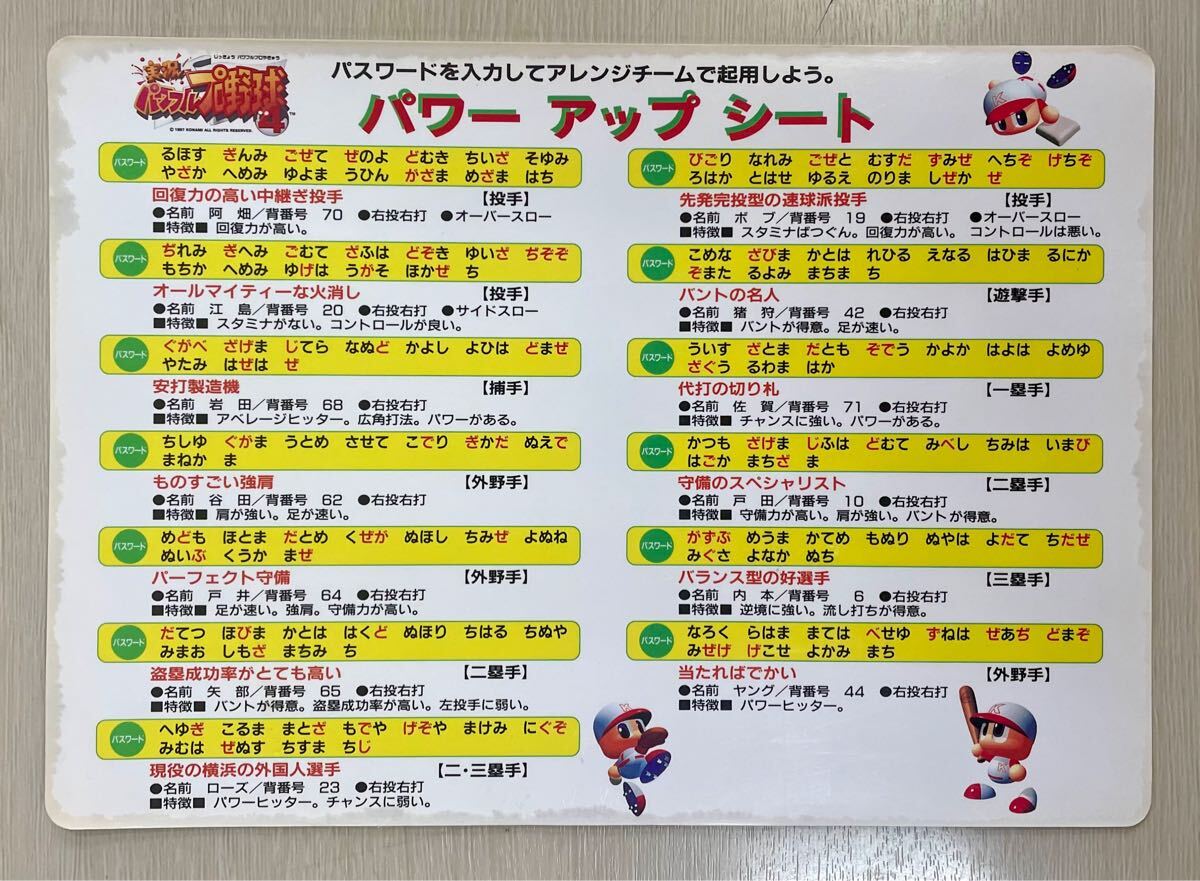 じっきょう パワフルプロやきゅう
実況
パワフルプロ野球
4™
© 1997 KONAMI ALL RIGHTS RESERVED.
パスワードを入力してアレンジチームで起用しよう。
パワー アップ シート
パスワード
るほす ぎんみ ごぜて ぜのよ どむき ちいざ そゆみ
やざか へめみ ゆよま うひん がざま めざま はち
回復力の高い中継ぎ投手 【投手】
●名前 阿 畑／背番号 70 ●右投右打 ●オーバースロー
■特徴■ 回復力が高い。
パスワード
ぢれみ ぎへみ ごむて ざふは どぞき ゆいざ ぢぞぞ
もちか へめみ ゆげは うがそ ほかぜ ち
オールマイティーな火消し 【投手】
●名前 江 島／背番号 20 ●右投右打 ●サイドスロー
■特徴■ スタミナがない。コントロールが良い。
パスワード
ぐがべ ざげま じてら なぬど かよし よひは どまぜ
やたみ はぜは ぜ
安打製造機 【捕手】
●名前 岩 田／背番号 68 ●右投右打
■特徴■ アベレージヒッター。広角打法。パワーがある。
パスワード
ちしゆ ぐがま うとめ させて こでり ぎかだ ぬえで
まねか ま
ものすごい強肩 【外野手】
●名前 谷 田／背番号 62 ●右投右打
■特徴■ 肩が強い。足が速い。
パスワード
めども ほとま だとめ くぜが ぬほし ちみぜ よぬね
ぬいぶ くうか まぜ
パーフェクト守備 【外野手】
●名前 戸 井／背番号 64 ●右投右打
■特徴■ 足が速い。強肩。守備力が高い。
パスワード
だてつ ほびま かとは はくど ぬほり ちはる ちぬや
みまお しもざ まちみ ち
盗塁成功率がとても高い 【二塁手】
●名前 矢 部／背番号 65 ●右投右打
■特徴■ バントが得意。盗塁成功率が高い。左投手に弱い。
パスワード
へゆぎ こるま まとざ もでや げぞや まけみ にぐぞ
みむは ぜぬす ちすま ちじ
現役の横浜の外国人選手 【二・三塁手】
●名前 ローズ／背番号 23 ●右投右打
■特徴■ パワーヒッター。チャンスに弱い。
パスワード
びごり なれみ ごぜと むすだ ずみぜ へちぞ げちぞ
ろはか とはせ ゆるえ のりま しぜか ぜ
先発完投型の速球派投手 【投手】
●名前 ボ ブ／背番号 19 ●右投右打 ●オーバースロー
■特徴■ スタミナばつぐん。回復力が高い。 コントロールは悪い。
パスワード
こめな ざびま かとは れひる えなる はひま るにか
ぞまた るよみ まちま ち
バントの名人 【遊撃手】
●名前 猪 狩／背番号 42 ●右投右打
■特徴■ バントが得意。足が速い。
パスワード
ういす ざとま だとも ぞでう かよか はよは よめゆ
ざぐう るわま はか
代打の切り札 【一塁手】
●名前 佐 賀／背番号 71 ●右投右打
■特徴■ チャンスに強い。パワーがある。
パスワード
かつも ざげま じふは どむて みべし ちみは いまび
はごか まちざ ま
守備のスペシャリスト 【二塁手】
●名前 戸 田／背番号 10 ●右投右打
■特徴■ 守備力が高い。肩が強い。バントが得意。
パスワード
がずぶ めうま かてめ もぬり ぬやは よだて ちだぜ
みぐさ よなか ぬち
バランス型の好選手 【三塁手】
●名前 内 本／背番号 6 ●右投右打
■特徴■ 逆境に強い。流し打ちが得意。
パスワード
なろく らはま まては べせゆ ずねは ぜあぢ どまぞ
みぜげ げこせ よかみ まち
当たればでかい 【外野手】
●名前 ヤング／背番号 44 ●右投右打
■特徴■ パワーヒッター。